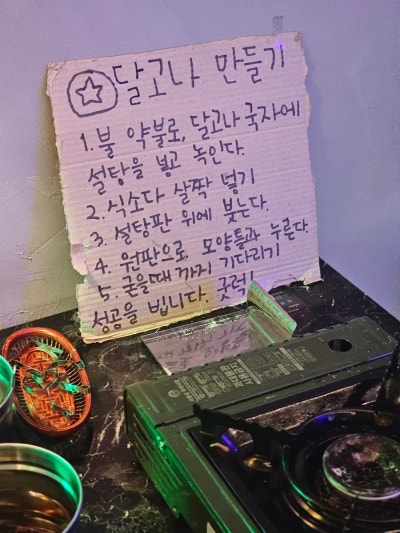 달고나 만들기
1. 불 약불로, 달고나 국자에
설탕을 넣고 녹인다.
2. 식소다 살짝 넣기
3. 설탕판 위에 붓는다.
4. 원판으로 모양틀과 누른다.
5. 굳을때까지 기다리기
성공을 빕니다. 굿럭!